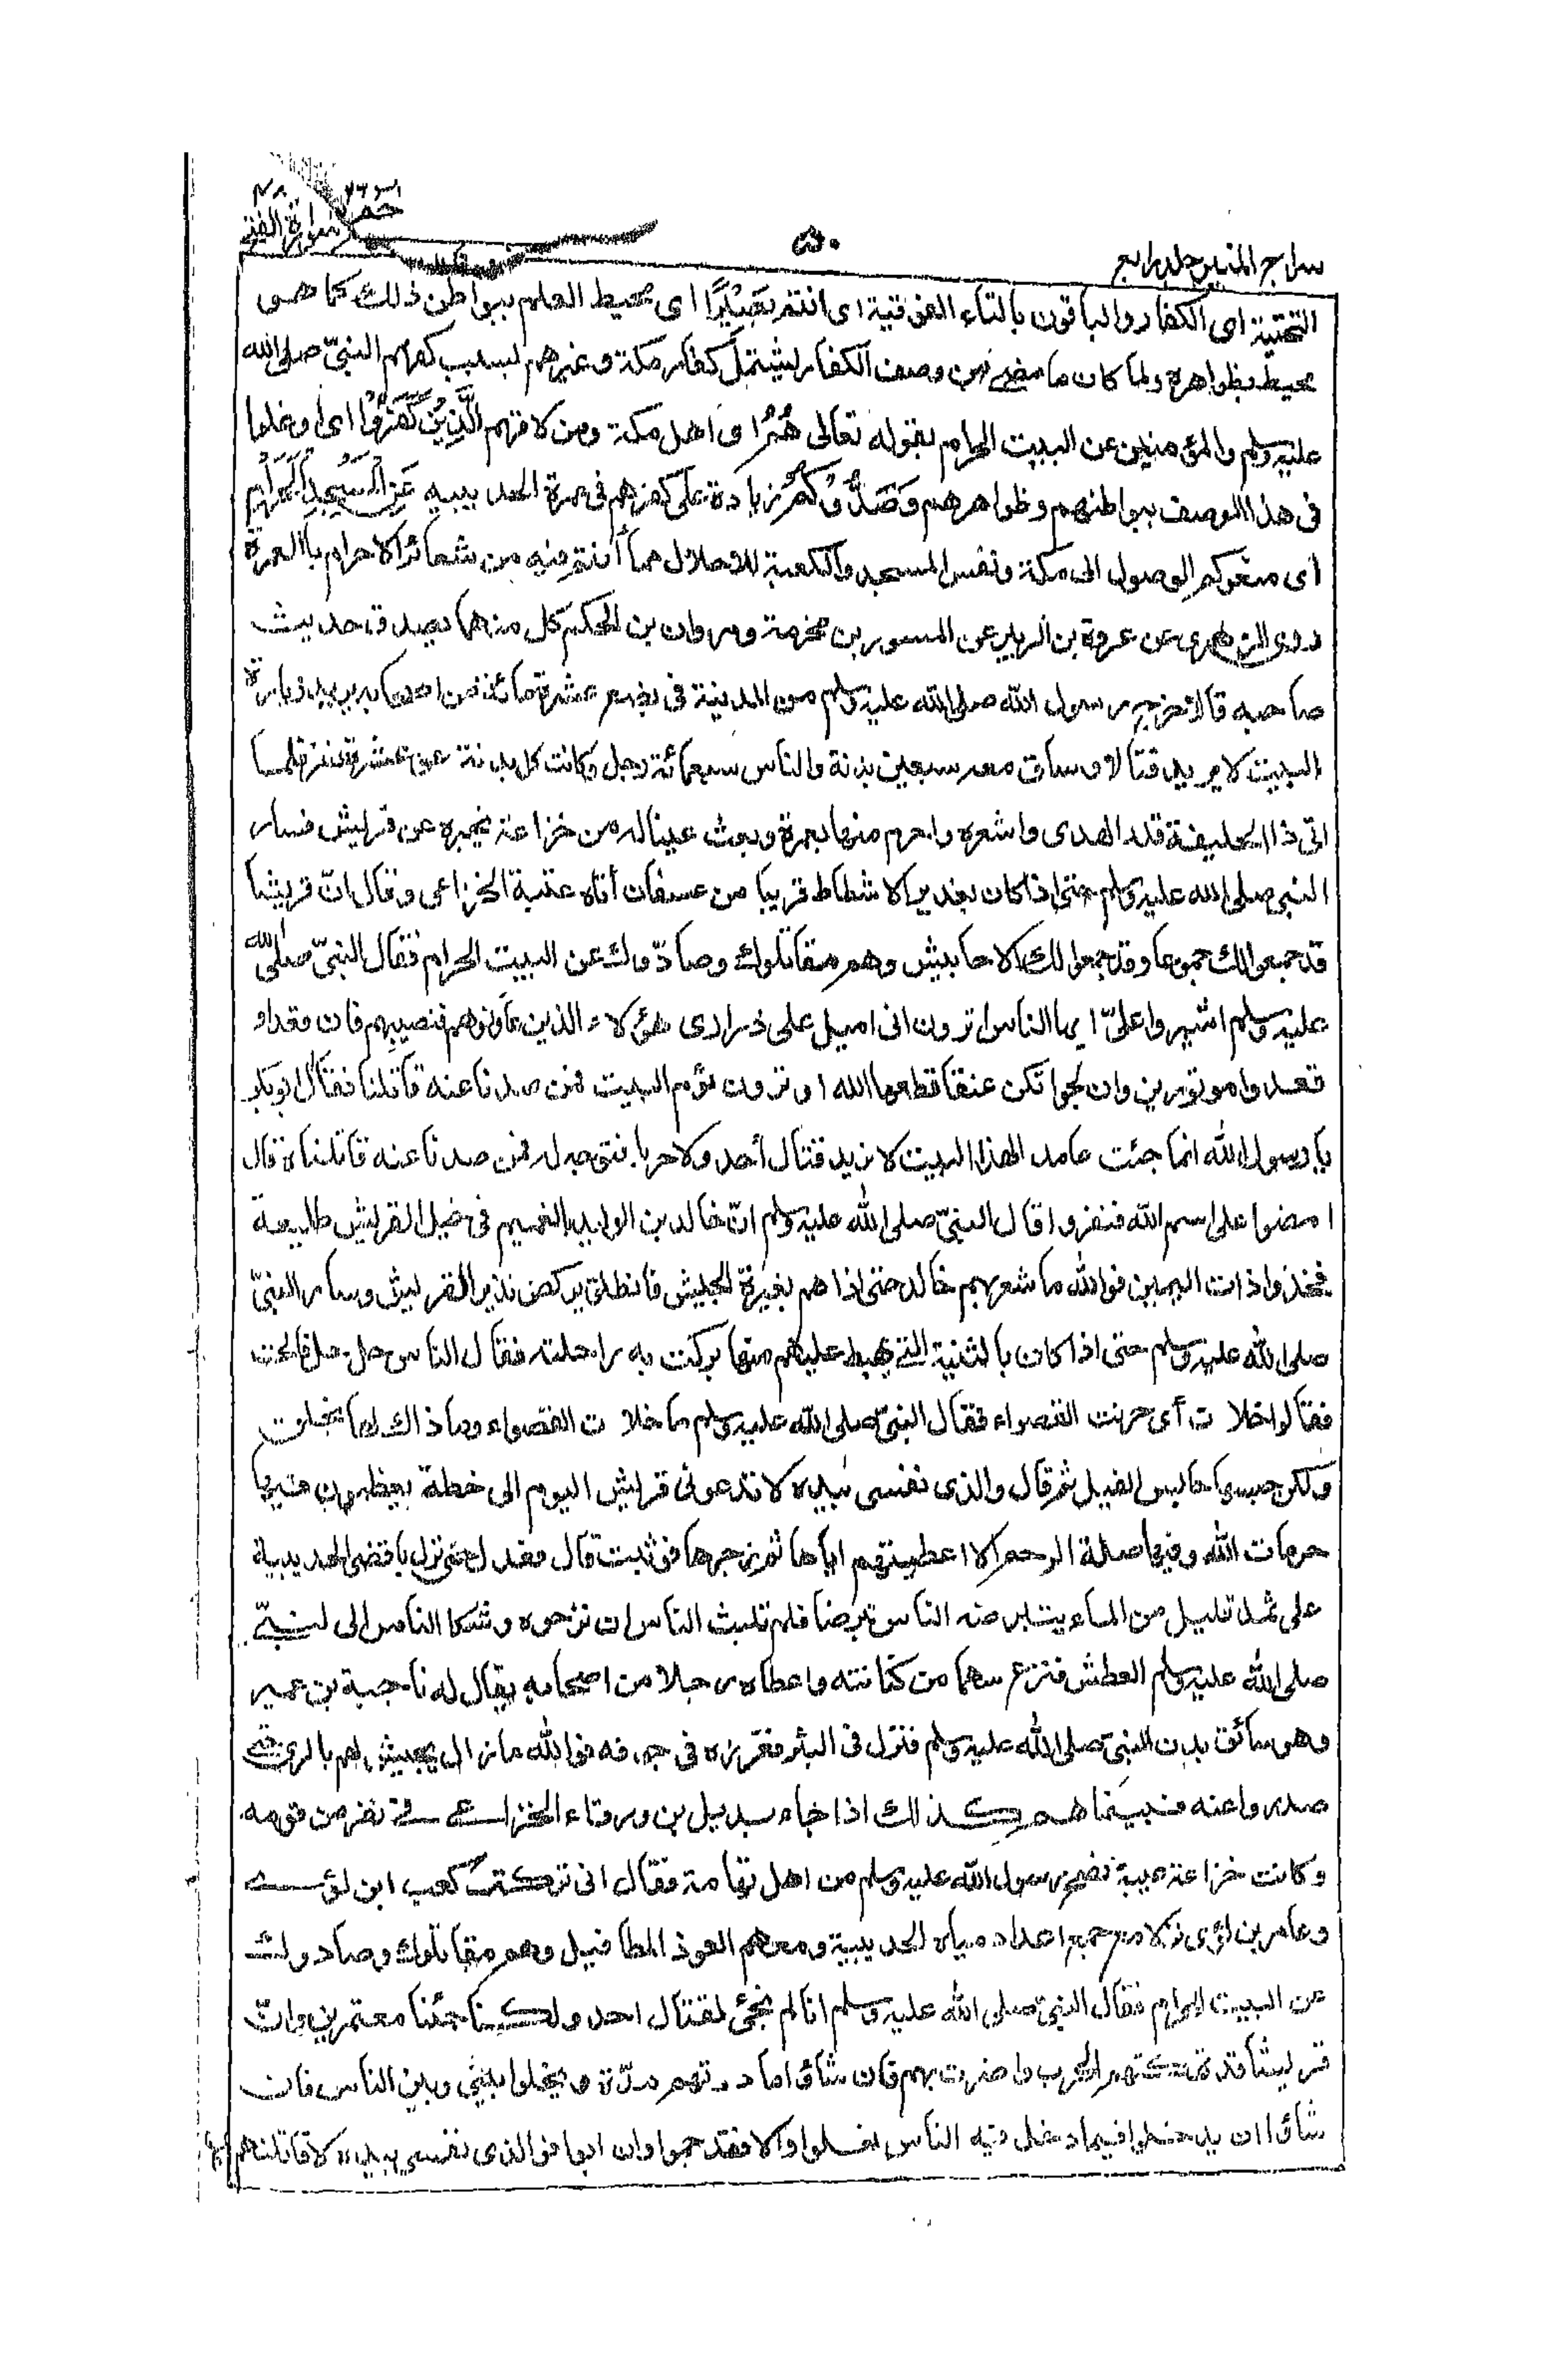 سراج المنير جلد رابع
٥٠
حم ٢٦
سورة الفتح ٤٨
التحتية اى الكفار والباقون بالتاء الفوقية اى انتم بَصِيْرًا اى محيط العلم ببواطن ذلك كما هو
محيط بظواهره ولما كان ما مضى من وصف الكفار يشتمل كفار مكة وغيرهم بسبب كفرهم النبىّ صلى الله
عليه وسلم والمؤمنين عن البيت الحرام بقوله تعالى هُمُ اى اهل مكة ومن لافهم الَّذِيْنَ كَفَرُوْا اى اوغلوا
فى هذا الوصف ببواطنهم وظواهرهم وَصَدُّوْكُمْ زيادة على كفرهم فى عمرة الحديبيه عَنِ الْمَسْجِدِ الْحَرَامِ
اى منعوكم الوصول الى مكة ونفس المسجد والكعبة للاحلال مما أنتم فيه من شعائر الاحرام بالعمرة
روى الزهرى عن عروة بن الزبير عن المسور بن مخرمة ومروان بن الحكم كل منهما يصدق حديث
صاحبه قالا خرج رسول الله صلى الله عليه وسلم من المدينة فى بضع عشرة مائة من اصحابه يريد زيارة
البيت لا يريد قتالا وساق معه سبعين بدنة والناس سبعمائة رجل وكانت كل بدنة عن عشرة نفر فلما
اتى ذا الحليفة قلد الهدى واشعره واحرم منها بعمرة وبعث عينا له من خزاعة يخبره عن قريش فسار
النبى صلى الله عليه وسلم حتى اذا كان بغدير الاشطاط قريبا من عسفان أتاه عتبة الخزاعى وقال انّ قريشا
قد جمعوا لك جموعا وقد جمعوا لك الاحابيش وهم مقاتلوك وصادّوك عن البيت الحرام فقال النبىّ صلى الله
عليه وسلم اشيروا علىّ ايها الناس اترون انى اميل على ذرارى هؤلاء الذين عاونوهم فنصيبهم فان قعدوا
قعدوا موتورين وان نجوا تكن عنقا قطعها الله او ترون نؤم البيت فمن صدنا عنه قاتلنا فقال ابو بكر
يا رسول الله انما جئت عامدا لهذا البيت لا نريد قتال أحد ولا حربا فتوجه له فمن صدنا عنه قاتلناه قال
امضوا على اسم الله فنفروا قال النبىّ صلى الله عليه وسلم انّ خالد بن الوليد بالغميم فى خيل لقريش طليعة
فخذوا ذات اليمين فوالله ما شعر بهم خالد حتى اذا هم بغبرة الجيش فانطلق يركض نذيرا لقريش وسار النبىّ
صلى الله عليه وسلم حتى اذا كان بالثنية التى يهبط عليهم منها بركت به راحلته فقال الناس حل حل فالحت
فقالوا خلات أى حرنت القصواء فقال النبىّ صلى الله عليه وسلم ما خلات القصواء وما ذاك لها بخلق
ولكن حبسها حابس الفيل ثم قال والذى نفسى بيده لا تدعونى قريش اليوم الى خطة يعظمون فيها
حرمات الله وفيها صلة الرحم الا اعطيتهم اياها ثم زجرها فوثبت قال فعدل حتى نزل باقصى الحديبية
على ثمد قليل من الماء يتبرضه الناس تبرضا فلم تلبث الناس ان نزحوه وشكا الناس الى النبىّ
صلى الله عليه وسلم العطش فنزع سهما من كنانته واعطاه رجلا من اصحابه يقال له ناجية بن عمير
وهو سائق بدن النبىّ صلى الله عليه وسلم فنزل فى البئر فغرزه فى جوفه فوالله ما زال يجيش لهم بالرى حتى
صدروا عنه فبينما هم كذلك اذا جاء بديل بن ورقاء الخزاعى فى نفر من قومه
وكانت خزاعة عيبة نصح رسول الله عليه وسلم من اهل تهامة فقال انى تركت كعب ابن لؤى
وعامر بن لؤى نزلا مع جمع اعداد مياه الحديبية ومعهم العوذ المطافيل وهم مقاتلوك وصادوك
عن البيت الحرام فقال النبىّ صلى الله عليه وسلم انا لم نجئ لقتال احد ولكنا جئنا معتمرين وانّ
قريشا قد نهكتهم الحرب واضرت بهم فان شاؤا ماددتهم مدّة ويخلوا بينى وبين الناس فان
شاؤا ان يدخلوا فيما دخل فيه الناس فعلوا والا فقد جموا وان ابوا فوالذى نفسى بيده لاقاتلنهم